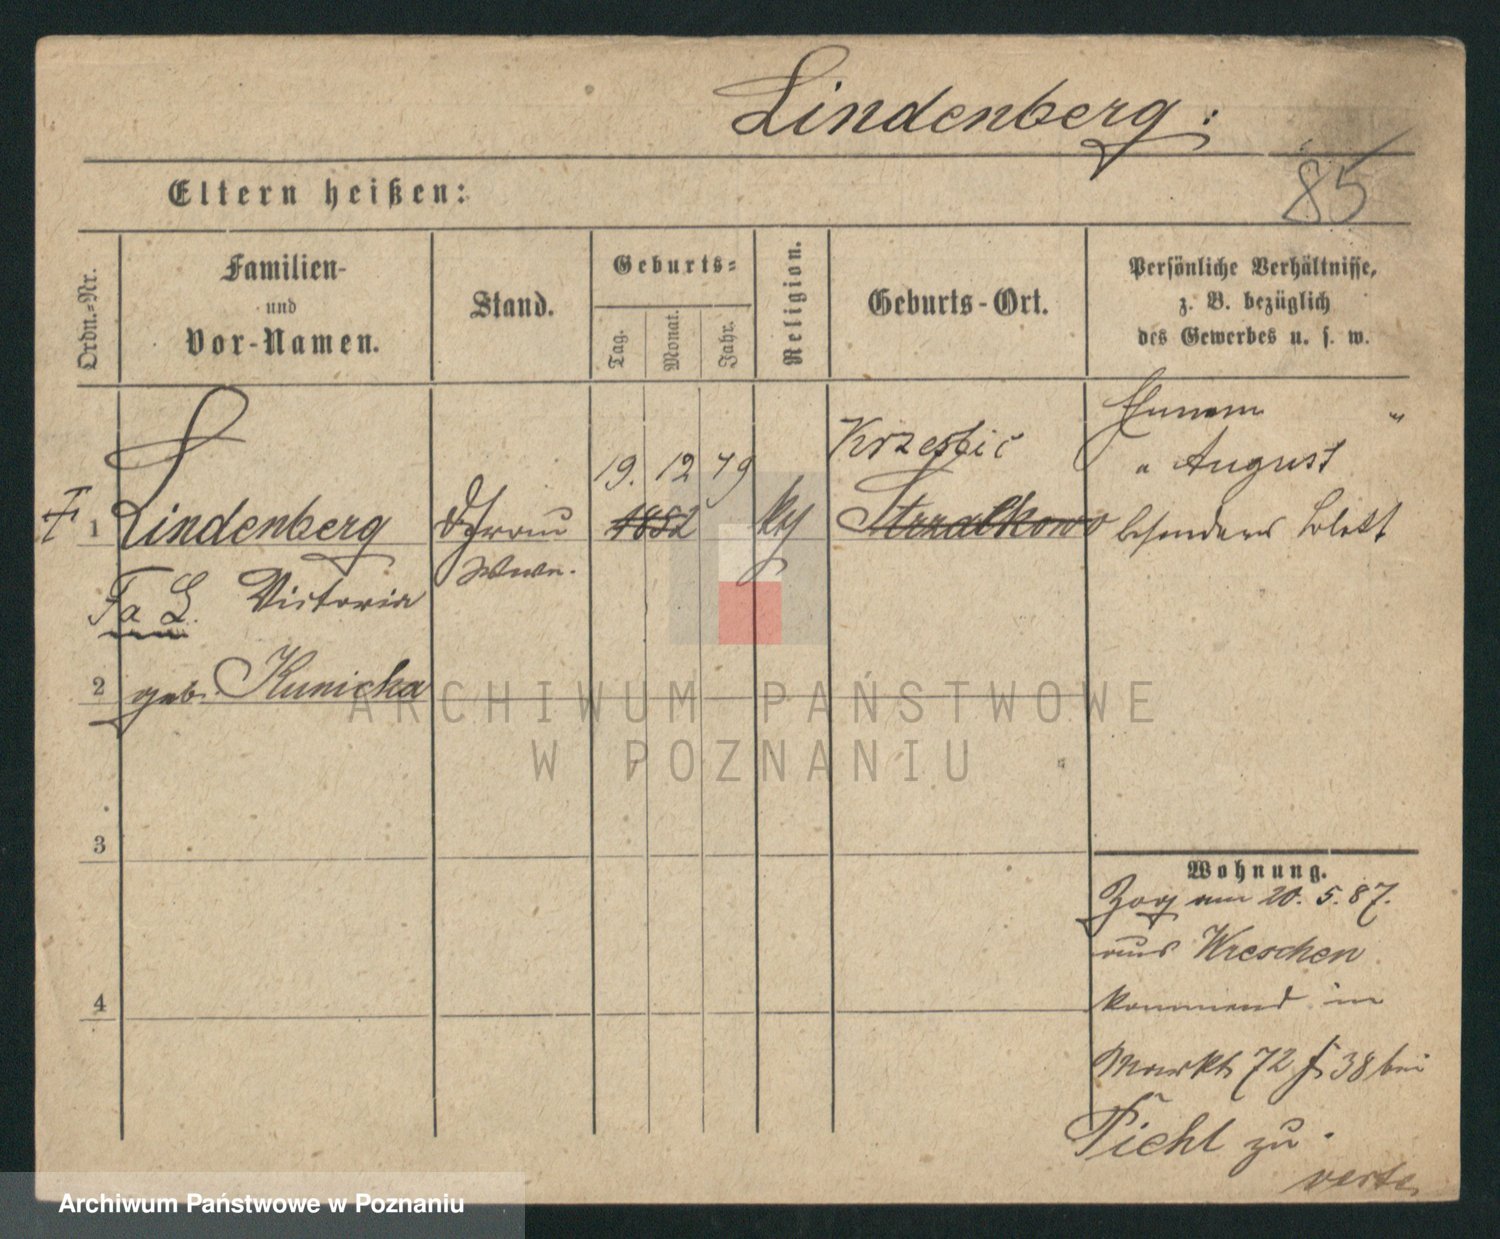 Lindenberg:
85
Eltern heißen:
Ordn.-Nr.
Familien-
und
Vor-Namen.
Stand.
Geburts-
Tag.
Monat.
Jahr.
Religion.
Geburts-Ort.
Persönliche Verhältnisse,
z. B. bezüglich
des Gewerbes u. s. w.
" August
19. 12 79
F 1 Lindenberg
1882
Strzalkowo
besonderes Blatt
Wwe.
Fa L. Victoria
2 geb. Kunicka
ARCHIWUM PAŃSTWOWE
W POZNANIU
3
Wohnung.
Zog am 20. 5. 87.
aus Wreschen
4
kommend in
Markt 72 38 bei
Piehl zu
verte
Archiwum Państwowe w Poznaniu